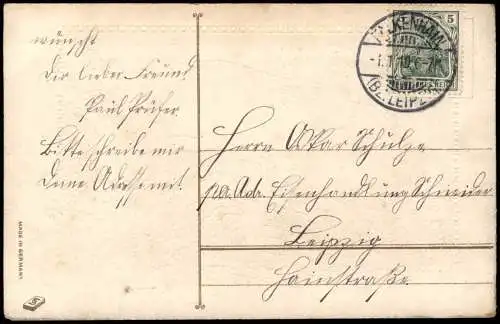 wünscht
Dir lieber Freund
Paul Prüfer.
Bitte schreibe mir
Deine Adresse mit.
MADE IN GERMANY
Herrn Oskar Schulze
Eisenhandlung Schneider
Leipzig
Hainstraße.
5
(BZ. LEIPZIG)